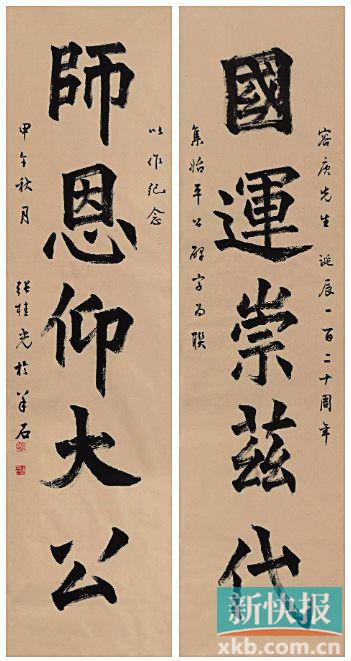 容庚先生誕辰一百二十周年
國運崇茲代
集始平公碑字為聯
以作紀念
師恩仰大公
甲午秋月 張桂光於羊石
新快报
xkb.com.cn